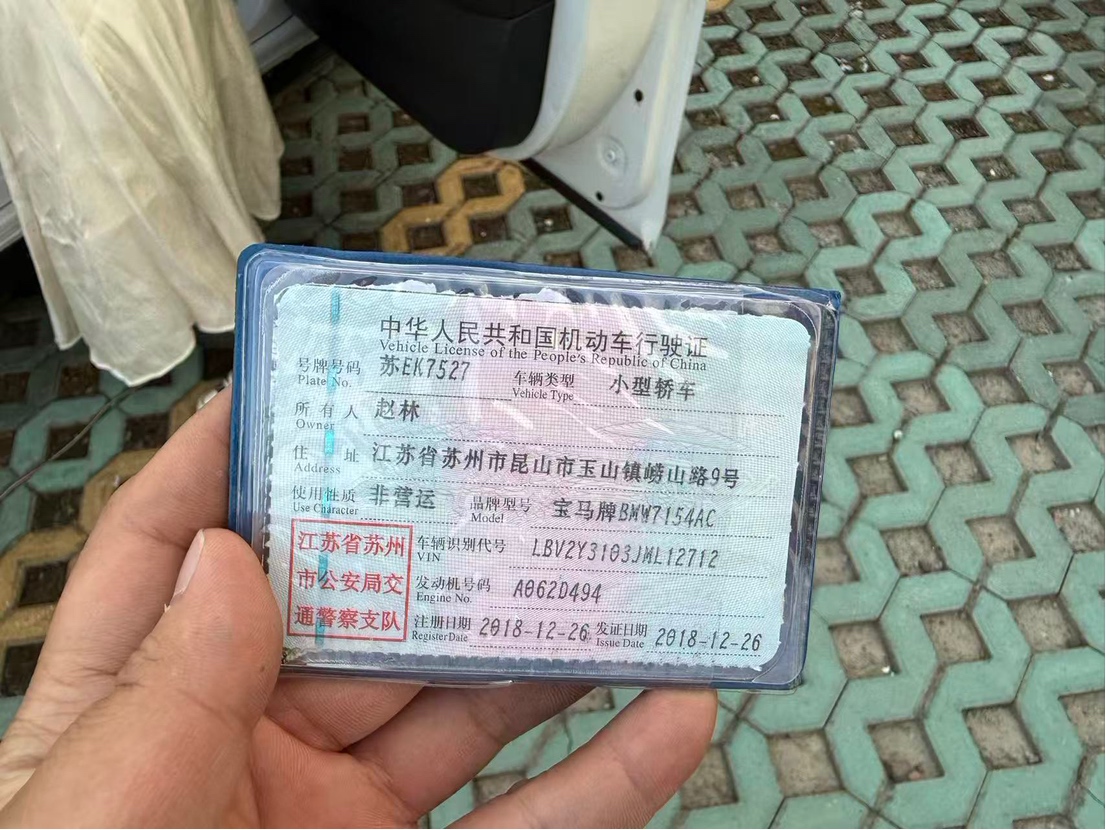 中华人民共和国机动车行驶证
Vehicle License of the People's Republic of China
号牌号码 苏EK7527 车辆类型 小型轿车
Plate No. Vehicle Type
所有人 赵林
Owner
住址 江苏省苏州市昆山市玉山镇崂山路9号
Address
使用性质 非营运 品牌型号 宝马牌BMW7154AC
Use Character Model
江苏省苏州
市公安局交
通警察支队
车辆识别代号 LBV2Y3103JML12712
VIN
发动机号码 A062D494
Engine No.
注册日期 2018-12-26 发证日期 2018-12-26
Register Date Issue Date